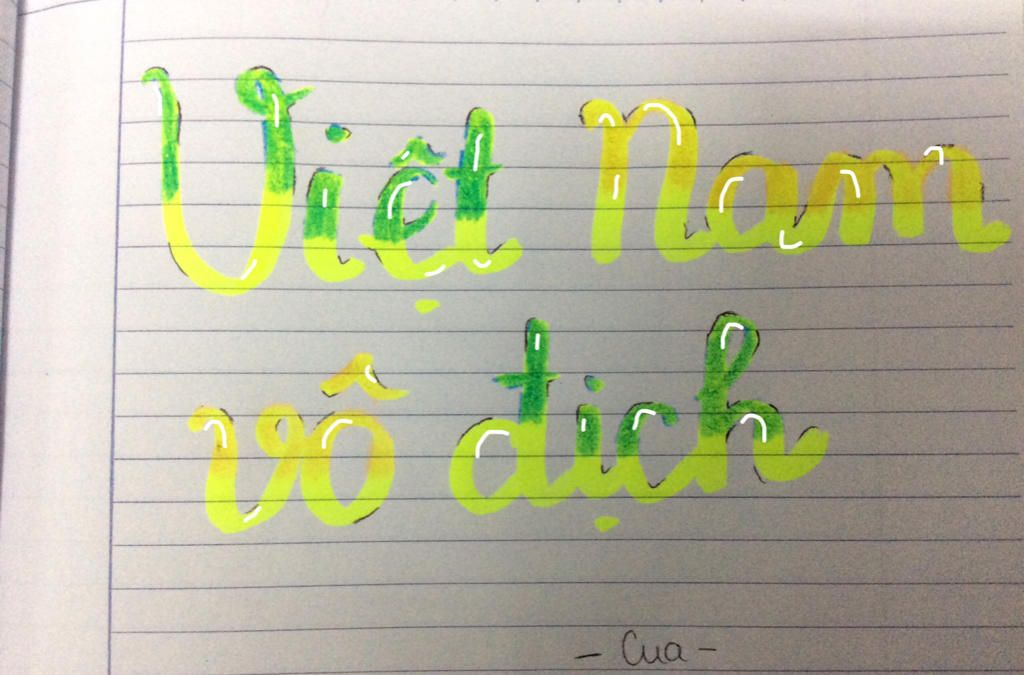 Việt Nam
vô địch
- Cua -